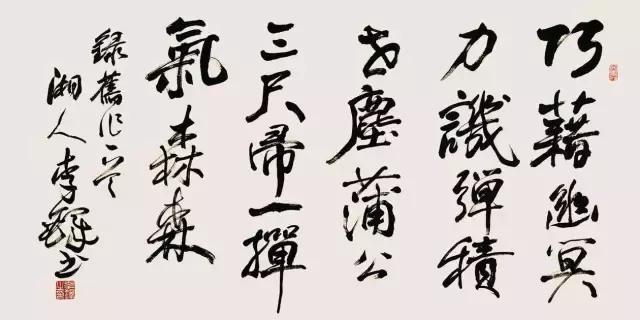 巧藉幽冥
力譏彈積
世塵蒲公
三尺帚一撣
氣森森
録舊作
湘人李鐸书